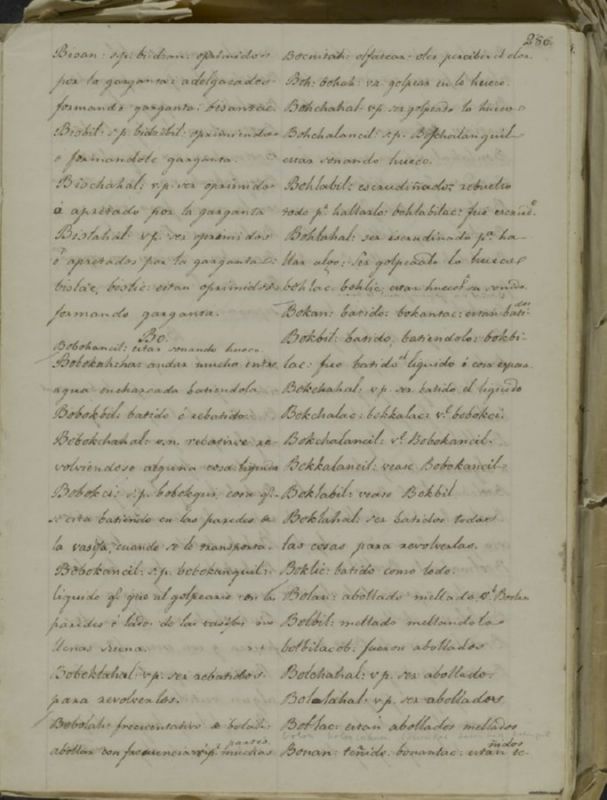 286
Bisan: s.p. bidzan: oprimidos
por la garganta: adelgazados
formando garganta: bisantac
Bisbil: s.p. bidzbil: oprimiendo
o formandole garganta.
Bischahal: v.p. ser oprimido
ó apretado por la garganta
Bistahal: v.p. ser oprimidos
ó apretados por la garganta:
bislac, bislic: estan oprimidos
formando garganta.
Bo
Bobohancil: estar sonando hueco
andar mucho entre
agua encharcada batiendola
Bobokbil: batido ó rebatido.
Bobokchahal: v.n. rebatirse re
volviendose alguna cosa liquida
Bobokci: s.p. cosa q.e
se esta batiendo en las paredes de
la vasija, cuando se le transporta.
Bobokancil: s.p. bobokanquil:
liquido q.e que al golpearse en las
paredes ó lados de las vasijas no
llenas suena.
Boboktahal: v.p. ser rebatidos
para revolverlos.
Bobolah: frecuentativo de bolah:
abollar con frecuencia muchas partes
Bocnitah: olfatear: oler percibir el olor
Boh: bohoh: va. golpear en lo hueco.
Bohchahal: v.p. ser golpeado lo hueco
Bohchalancil: s.p. Bohchalanquil
estar sonando hueco.
Bohlabil: escrudiñado, rebuelto
todo p.a hallarlo: bohlabilac: fué escruñ.o
Bohlahal: ser escrudinado p.a ha
llar algo: ser golpeado lo hueco
bohlac: bohlic, estar hueco
Bokan: batido: bokantac: estan batidos
Bokbil: batido, batiendolo: bokbi
lac: fue batido el liquido ó cosa
Bokchahal: v.p. ser batido el liquido
Bokchalac: bokkalac: v.e bobokci
Bokchalancil: v.e Bobokancil.
Bokkalancil: vease Bobokancil
Boklabil: vease Bokbil
Boklahal: ser batidos todas
las cosas para revolverlas.
Boklic: batido como lodo.
Bolan: abollado mellado v.e
Bolbil: mellado mellandolo
bolbilacob: fueron abollados
Bolchahal: v.p. ser abollado
Bollahal: v.p. ser abollados
Bollac: estan abollados mellados
Bonan: teñido. bonantac: estan teñidos